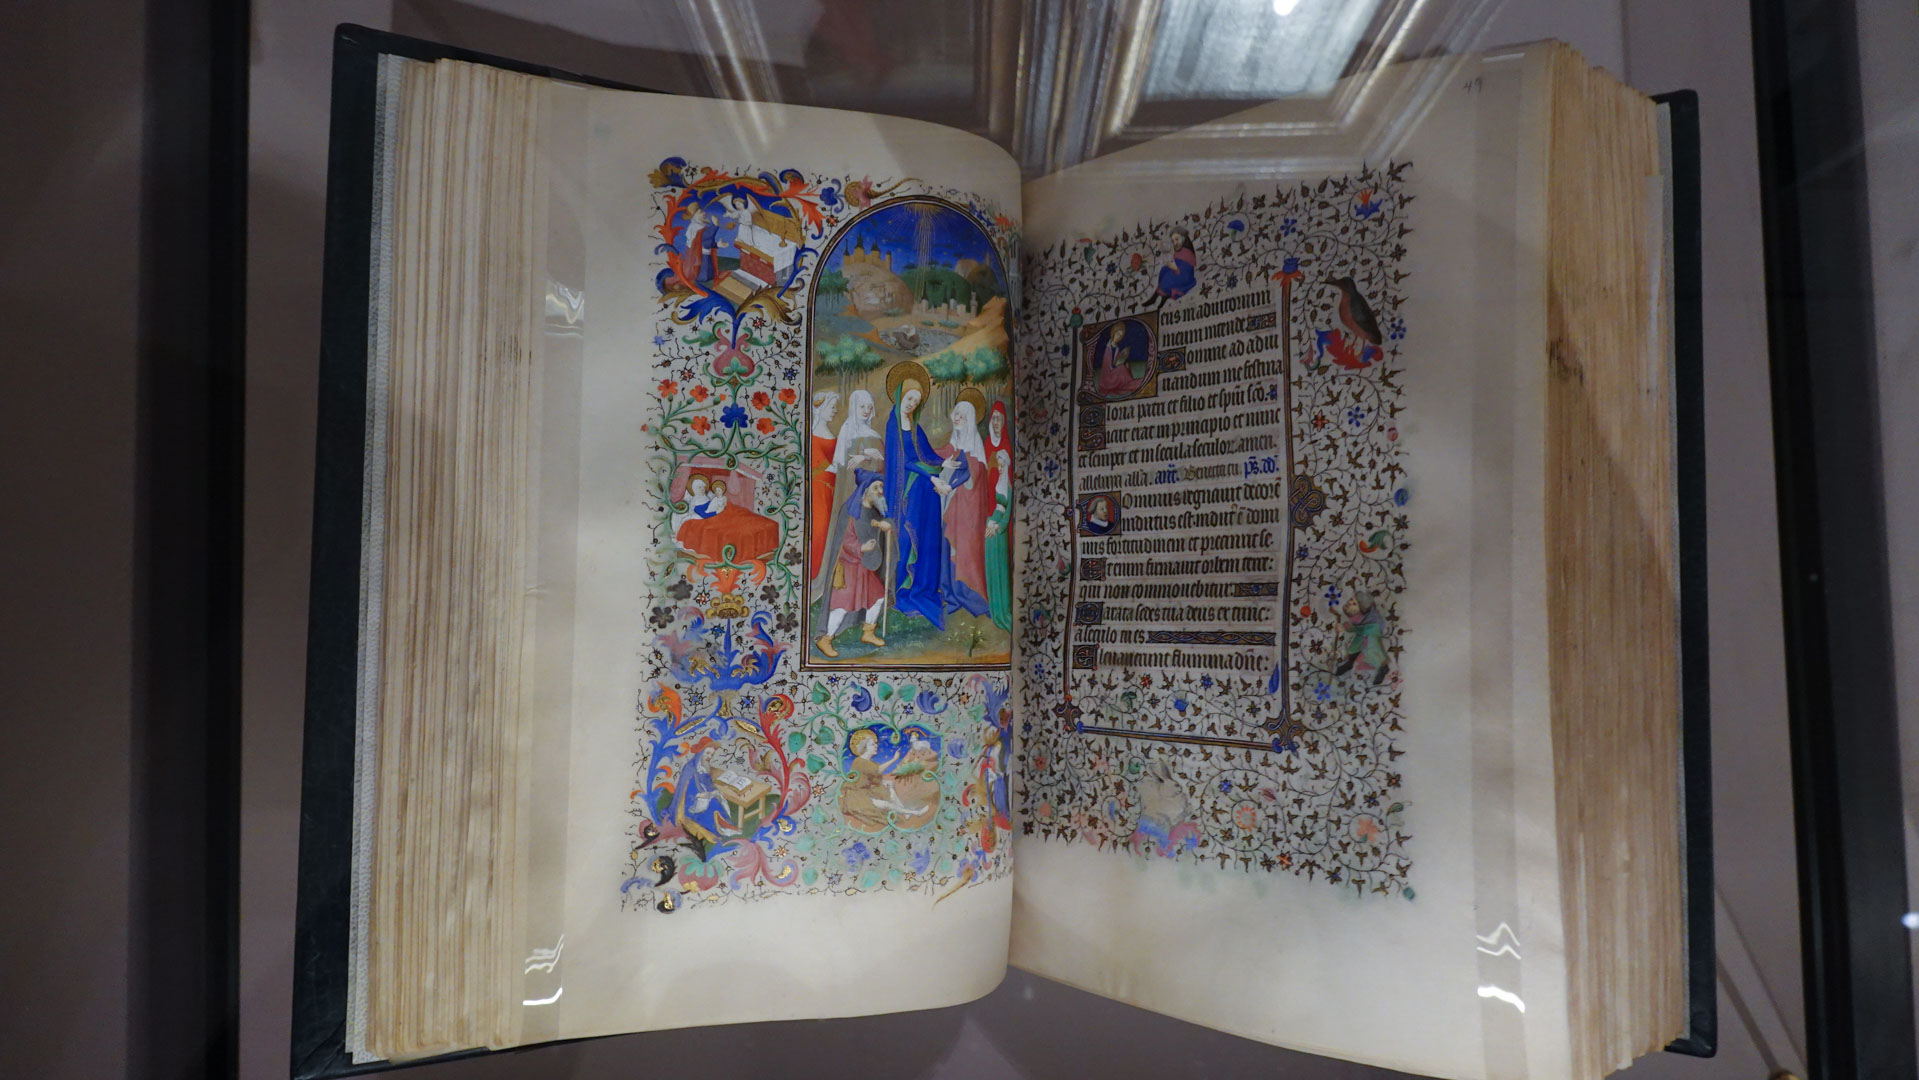 49
eus in adiutorium
meum intende
omine ad adiu
uandum me festina
loria patri et filio et spũi sc̃o.
icut erat in principio et nunc
et semper et in secula seculoꝝ. amen.
alleluya alla. añt. Benedicta tu. p̃s. dd̃.
Ominus regnauit decorẽ
indutus est. indut᷒ ẽ domi
nus fortitudinem et precinxit se.
tenim firmauit orbem terre:
qui non commouebitur.
arata sedes tua deus ex tunc:
a seculo tu es.
Eleuauerunt flumina dñe: